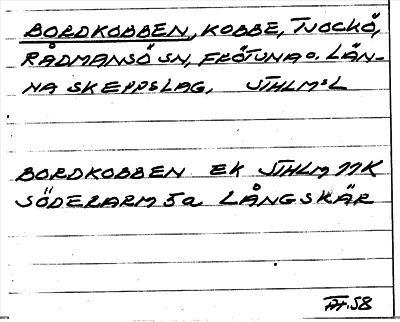 BORDKOBBEN, KOBBE, TJOCKÖ,
RÅDMANSÖ SN, FRÖTUNA O. LÄN-
NA SKEPPSLAG, STHLM:S L
BORDKOBBEN EK STHLM 11K
SÖDERARM 5a LÅNGSKÄR
58